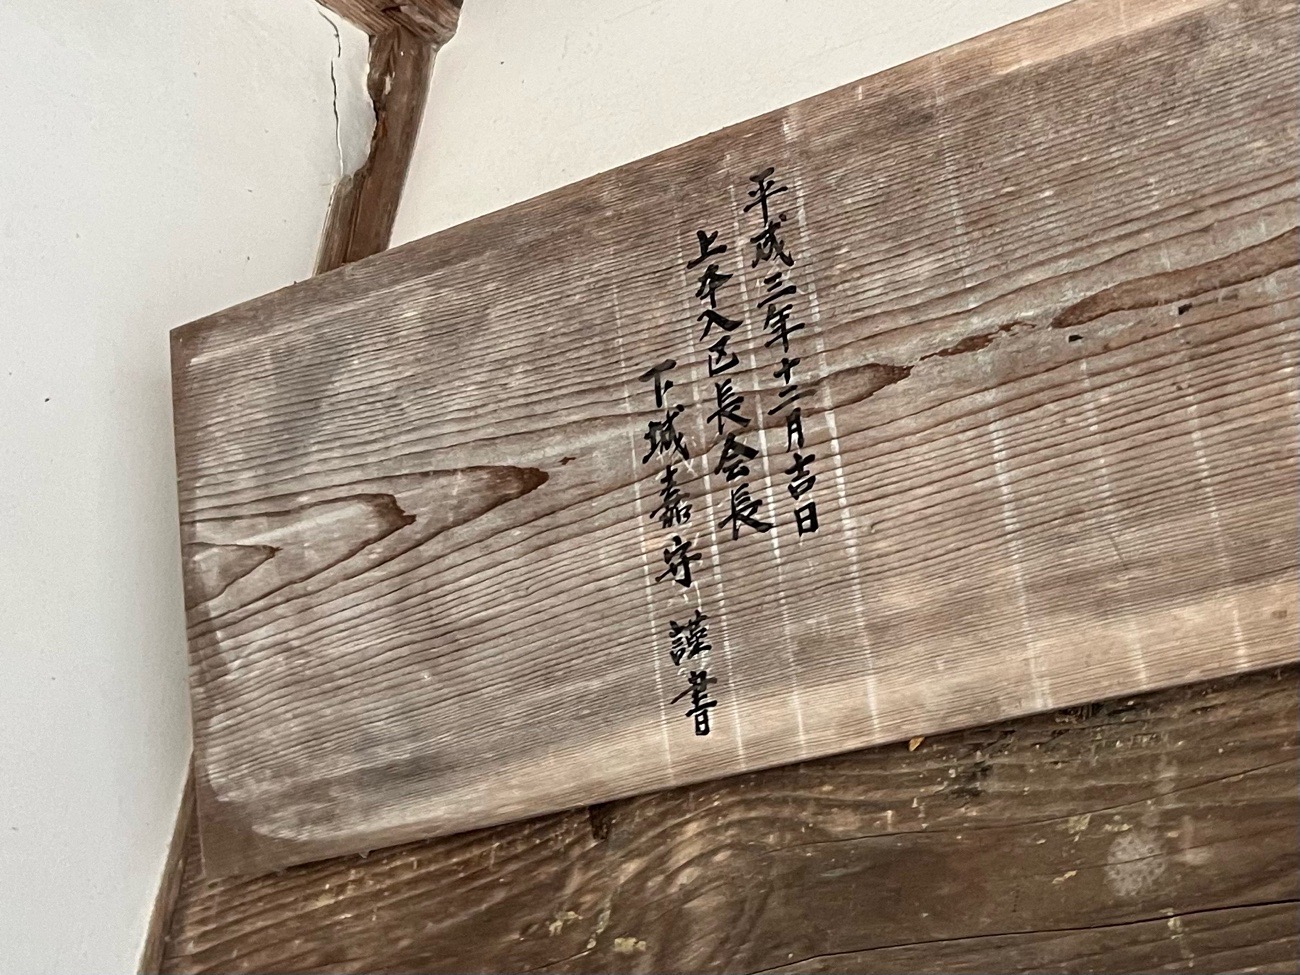 平成三年十二月吉日
上本入区長会長
下城嘉守 謹書